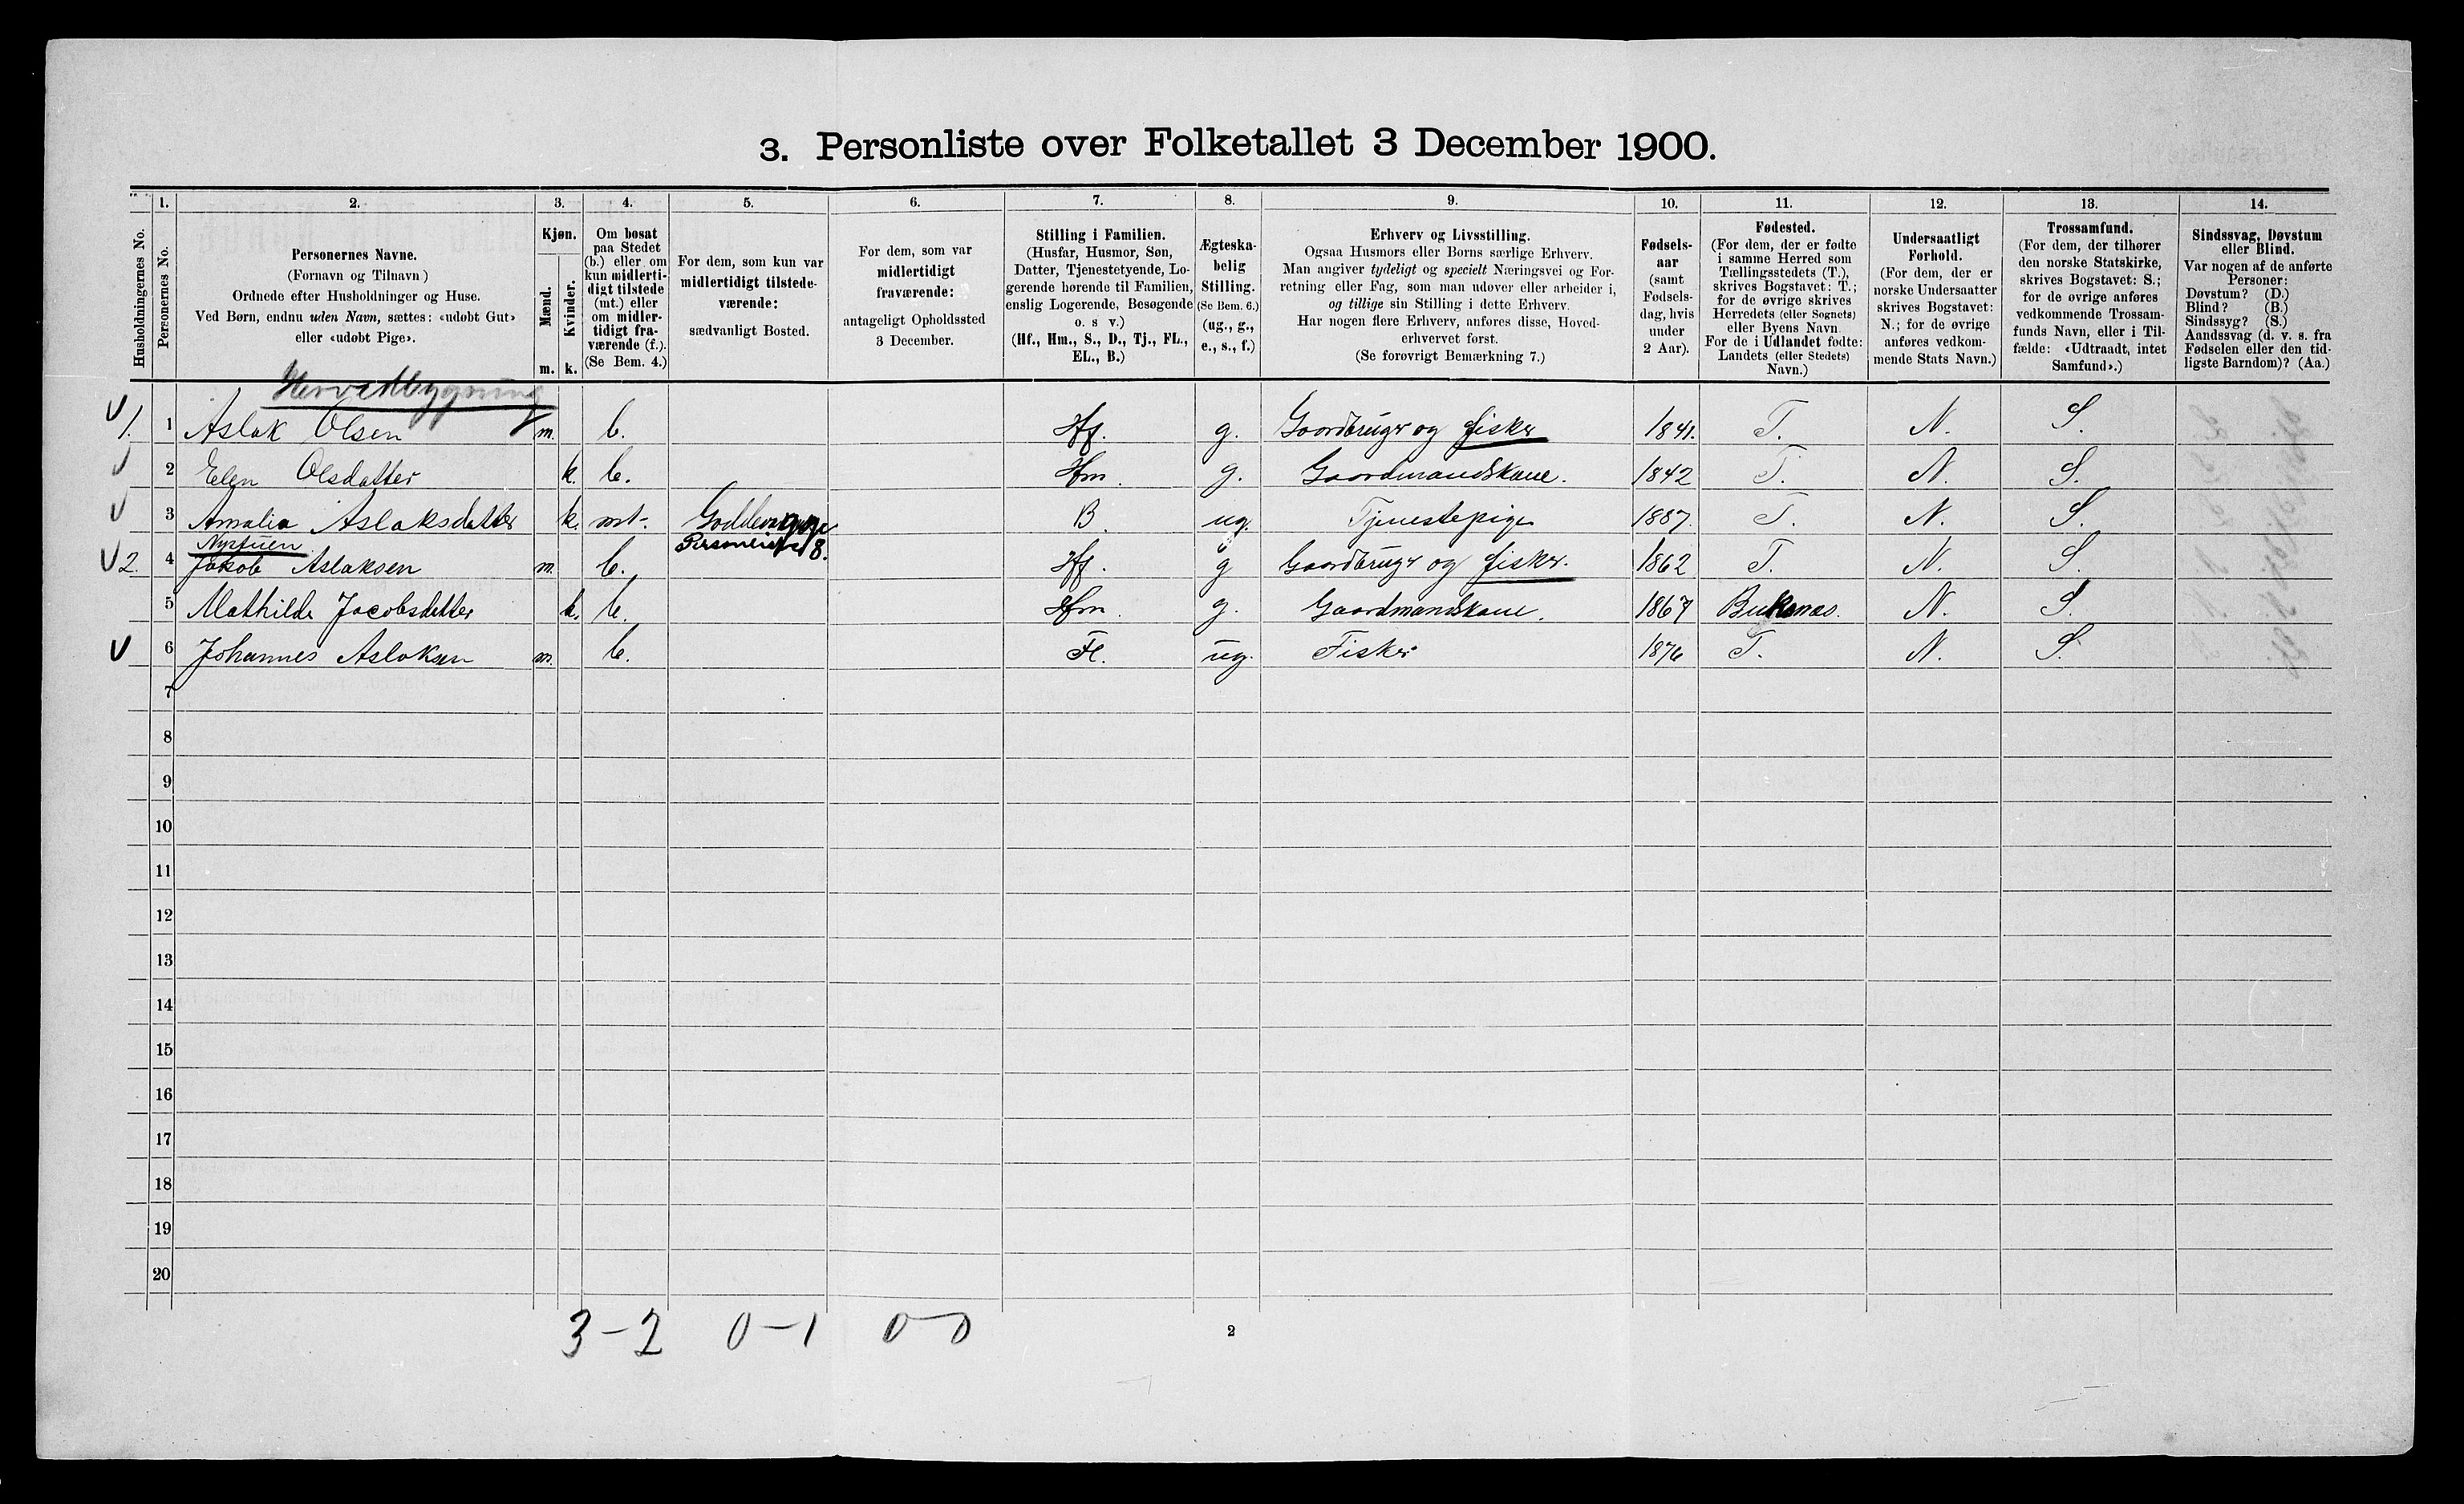 3. Personliste over Folketallet 3 December 1900.
1. 2. 3. 4. 5. 6. 7. 8. 9. 10. 11. 12. 13. 14.
Husholdningernes No.
Personernes No.
Personernes Navne.
(Fornavn og Tilnavn)
Ordnede efter Husholdninger og Huse.
Ved Børn, endnu uden Navn, sættes: «udøbt Gut»
eller «udøbt Pige».
Kjøn.
Mænd.
Kvinder.
m. k.
Om bosat
paa Stedet
(b.) eller om
kun midlerti-
digt tilstede
(mt.) eller
om midler-
tidigt fra-
værende (f.).
(Se Bem. 4.)
For dem, som kun var
midlertidigt tilstede-
værende:
sædvanligt Bosted.
For dem, som var
midlertidigt
fraværende:
antageligt Opholdssted
3 December.
Stilling i Familien.
(Husfar, Husmor, Søn,
Datter, Tjenestetyende, Lo-
gerende hørende til Familien,
enslig Logerende, Besøgende
o. s v.)
(Hf., Hm., S., D., Tj., FL.,
EL., B.)
Ægteska-
belig
Stilling.
(Se Bem. 6.)
(ug., g.,
e., s., f.)
Erhverv og Livsstilling.
Ogsaa Husmors eller Børns særlige Erhverv.
Man angiver tydeligt og specielt Næringsvei og For-
retning eller Fag, som man udøver eller arbeider i,
og tillige sin Stilling i dette Erhverv.
Har nogen flere Erhverv, anføres disse, Hoved-
erhvervet først.
(Se forøvrigt Bemærkning 7.)
Fødsels-
aar
(samt
Fødsels-
dag, hvis
under
2 Aar).
Fødested.
(For dem, der er fødte
i samme Herred som
Tællingsstedets (T.),
skrives Bogstavet: T.;
for de øvrige skrives
Herredets (eller Sognets)
eller Byens Navn.
For de i Udlandet fødte:
Landets (eller Stedets)
Navn.)
Undersaatligt
Forhold.
(For dem, der er
norske Undersaatter
skrives Bogstavet:
N.; for de øvrige
anføres vedkom-
mende Stats Navn.)
Trossamfund.
(For dem, der tilhører
den norske Statskirke,
skrives Bogstavet: S.;
for de øvrige anføres
vedkommende Trossam-
funds Navn, eller i Til-
fælde: «Udtraadt, intet
Samfund».)
Sindssvag, Døvstum
eller Blind.
Var nogen af de anførte
Personer:
Døvstum? (D.)
Blind? (B.)
Sindssyg? (S.)
Aandssvag (d. v. s. fra
Fødselen eller den tid-
ligste Barndom)? (Aa.)
Hovedbygning
1. 1 Aslak Olsen m. b. Hf. g. Gaardbruger og fisker 1841. T. N. S.
2 Elen Olsdatter k. b. Hm. g. Gaardmandskone. 1842 T. N. S.
3 Amalia Aslaksdatter k. mt. B ug. Tjenestepige 1887. T. N. S.
Nystuen
2. 4 Jakob Aslaksen m. b. Hf. g Gaardbruger og fisker. 1862 T. N. S.
5 Mathilde Jacobsdatter k. b. Hm. g. Gaardmandskone. 1867 Buksnæs. N. S.
6 Johannes Aslaksen m. b. Fl. ug. Fisker 1876 T. N. S.
7
8
9
10
11
12
13
14
15
16
17
18
19
20
3-2 0-1 0-0
2